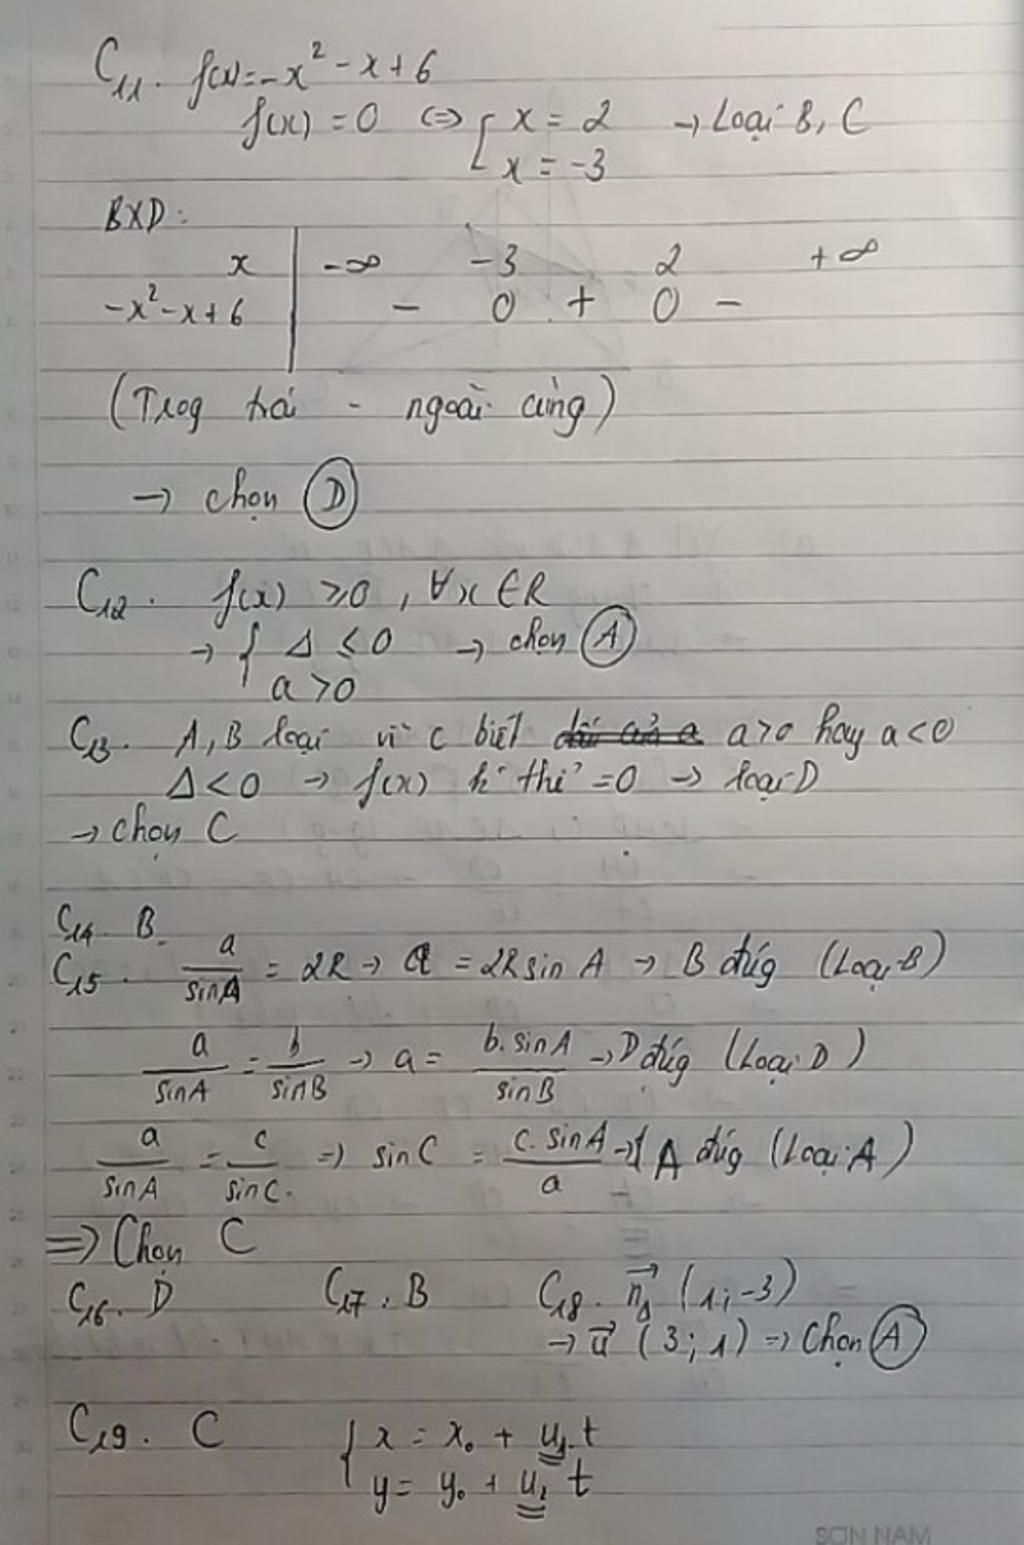 C₁₁. f(x)=-x² - x + 6
f(x) = 0 <=> [ x = 2 → Loại B, C
x = -3
BXD:
x | -∞ -3 2 +∞
-x² - x + 6 | - 0 + 0 -
(Trog trái - ngoài cùng)
→ chọn D
C₁₂. f(x) ≥ 0 , ∀x ∈ R
→ { Δ ≤ 0 → chọn A
a > 0
C₁₃. A, B loại vì c biết a>0 hay a<0
Δ < 0 → f(x) k thể = 0 → loại D
→ chọn C
C₁₄. B.
C₁₅. a/sinA = 2R → a = 2R sin A → B đúg (Loại B)
a/sinA = b/sinB → a = b.sinA/sinB → D đúg (Loại D)
a/sinA = c/sinC. => sinC = c.sinA/a → A đúg (Loại A)
=> Chọn C
C₁₆. D C₁₇. B C₁₈. n⃗Δ (1; -3)
→ u⃗ (3; 1) => Chọn A
C₁₉. C { x = x₀ + u₁.t
y = y₀ + u₂ t
SƠN NAM